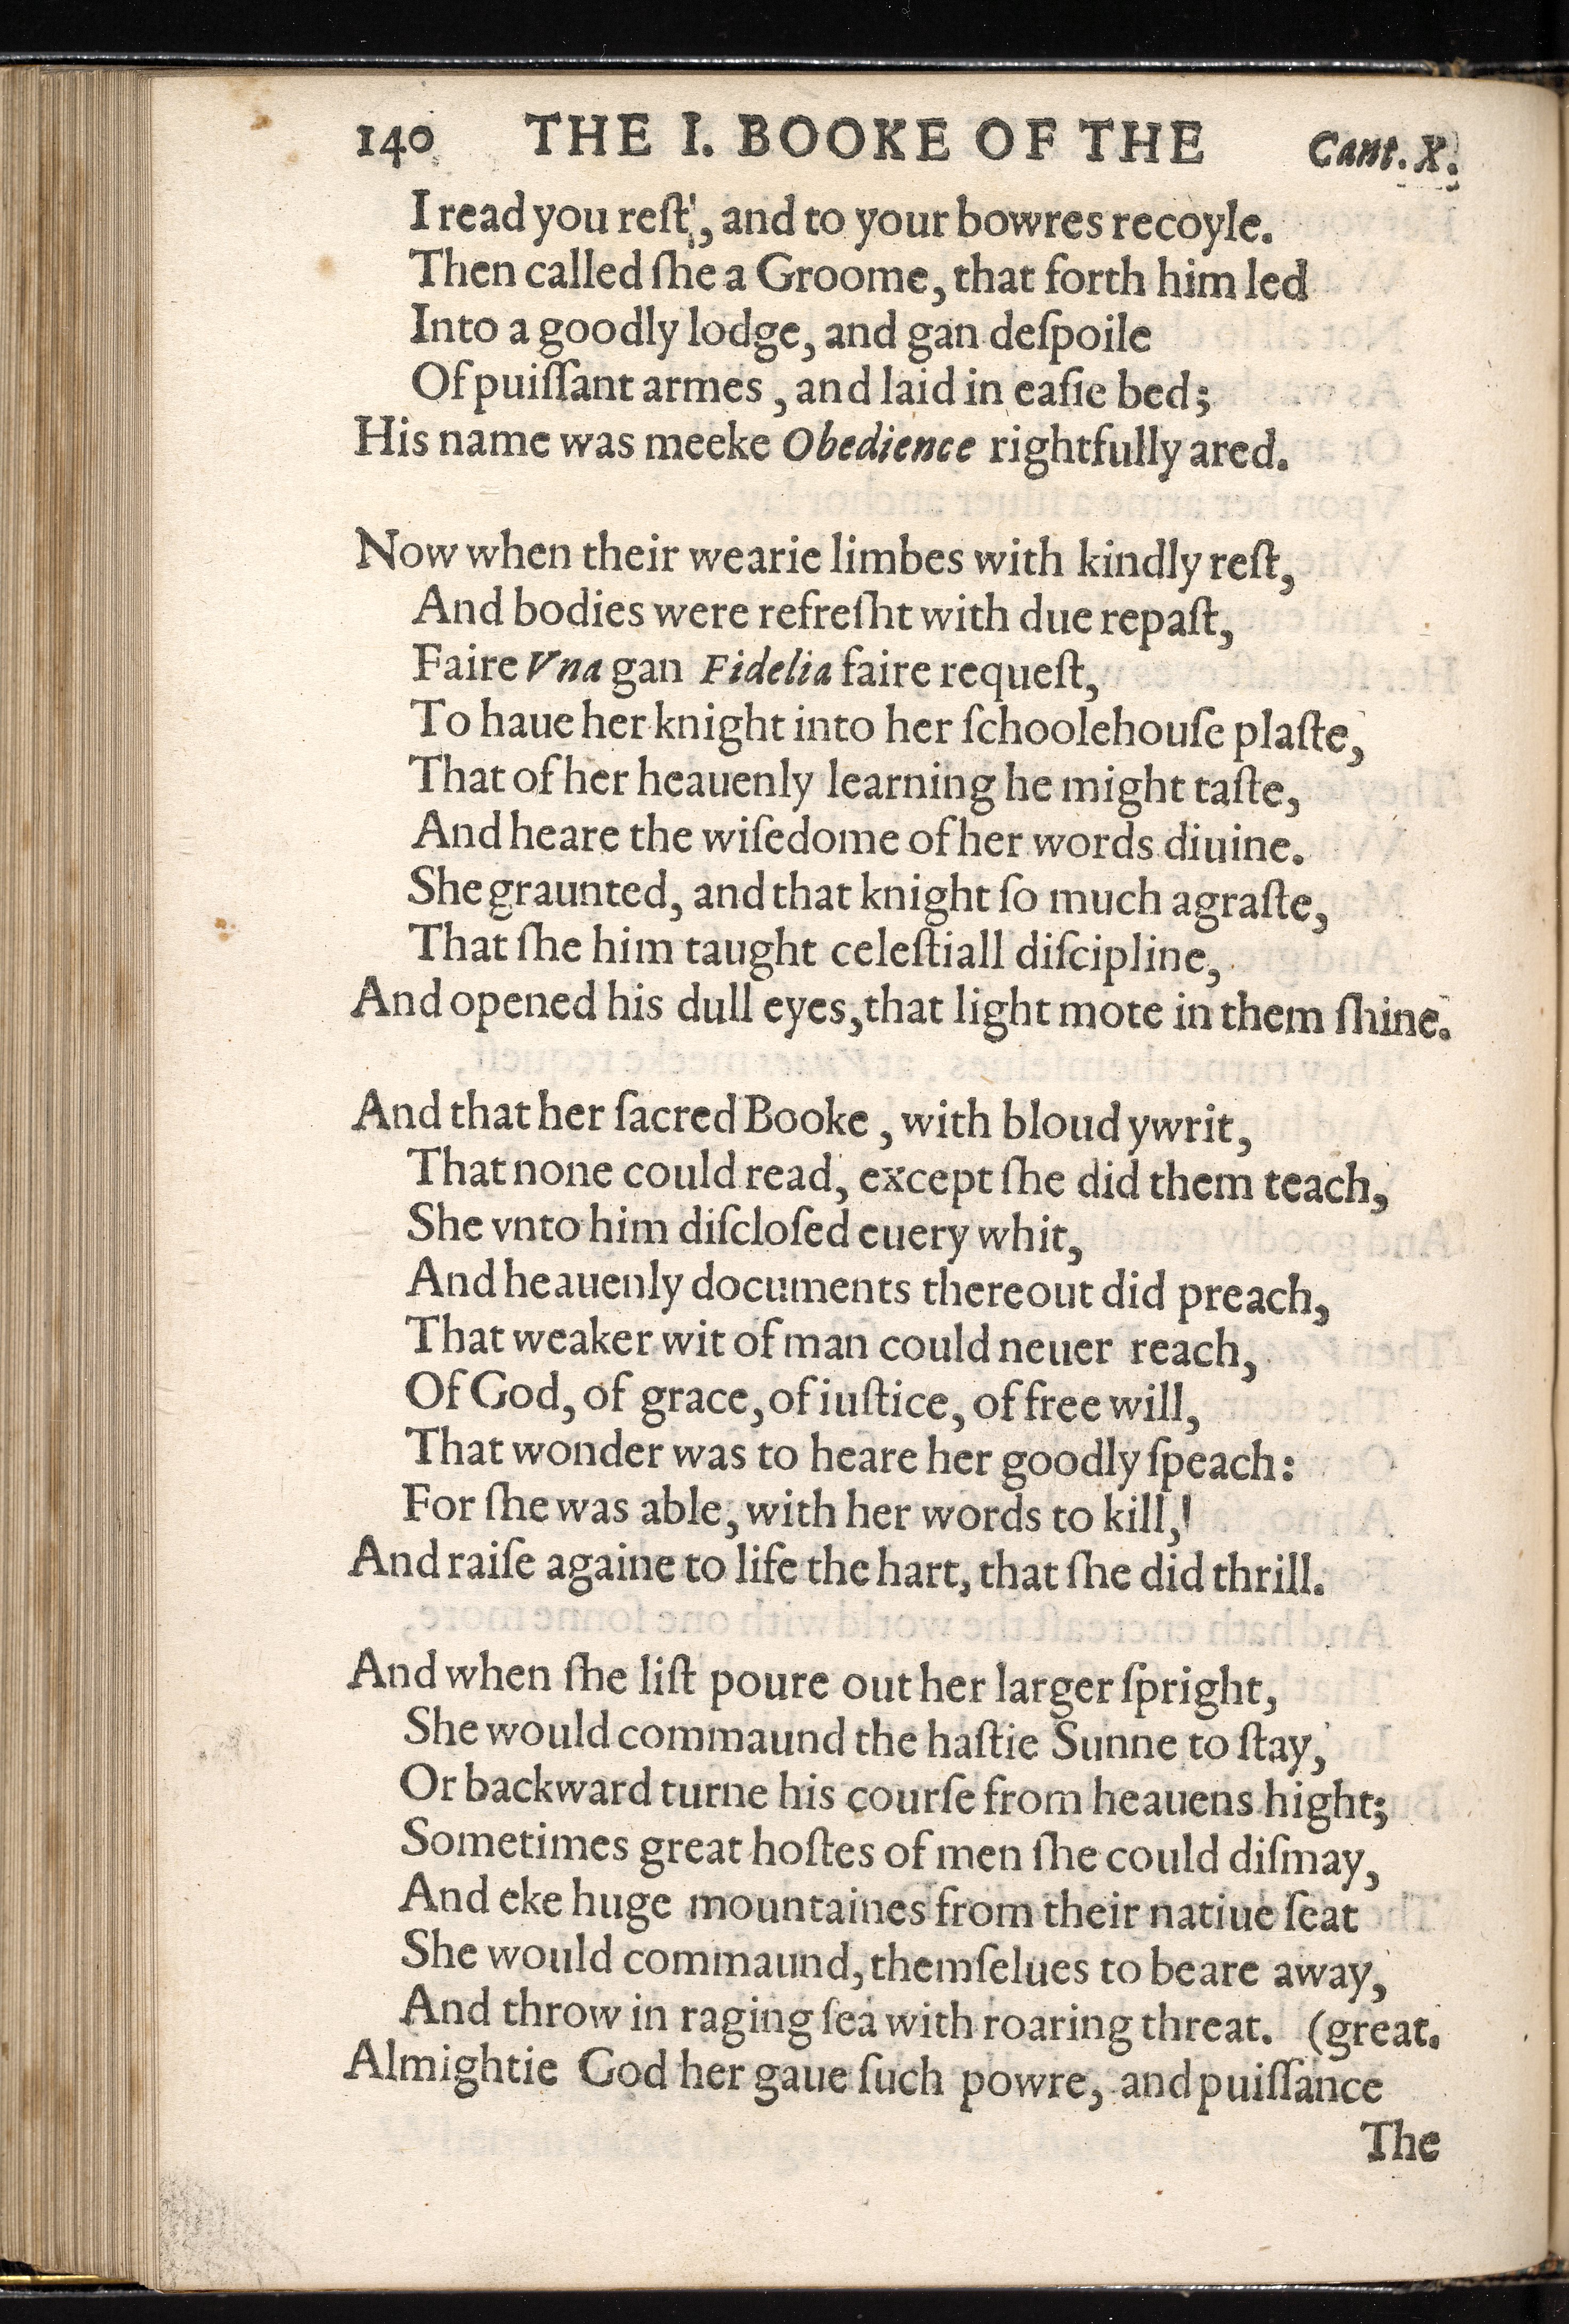 140 THE I. BOOKE OF THE Cant. X.
I read you reſt', and to your bowres recoyle.
Then called ſhe a Groome, that forth him led
Into a goodly lodge, and gan deſpoile
Of puiſſant armes, and laid in eaſie bed;
His name was meeke Obedience rightfully ared.
Now when their wearie limbes with kindly reſt,
And bodies were refreſht with due repaſt,
Faire Vna gan Fidelia faire requeſt,
To haue her knight into her ſchoolehouſe plaſte,
That of her heauenly learning he might taſte,
And heare the wiſedome of her words diuine.
She graunted, and that knight ſo much agraſte,
That ſhe him taught celeſtiall diſcipline,
And opened his dull eyes, that light mote in them ſhine.
And that her ſacred Booke, with bloud ywrit,
That none could read, except ſhe did them teach,
She vnto him diſcloſed euery whit,
And heauenly documents thereout did preach,
That weaker wit of man could neuer reach,
Of God, of grace, of iuſtice, of free will,
That wonder was to heare her goodly ſpeach:
For ſhe was able, with her words to kill,
And raiſe againe to life the hart, that ſhe did thrill.
And when ſhe liſt poure out her larger ſpright,
She would commaund the haſtie Sunne to ſtay,
Or backward turne his courſe from heauens hight;
Sometimes great hoſtes of men ſhe could diſmay,
And eke huge mountaines from their natiue ſeat
She would commaund, themſelues to beare away,
And throw in raging ſea with roaring threat. (great.
Almightie God her gaue ſuch powre, and puiſſance
The